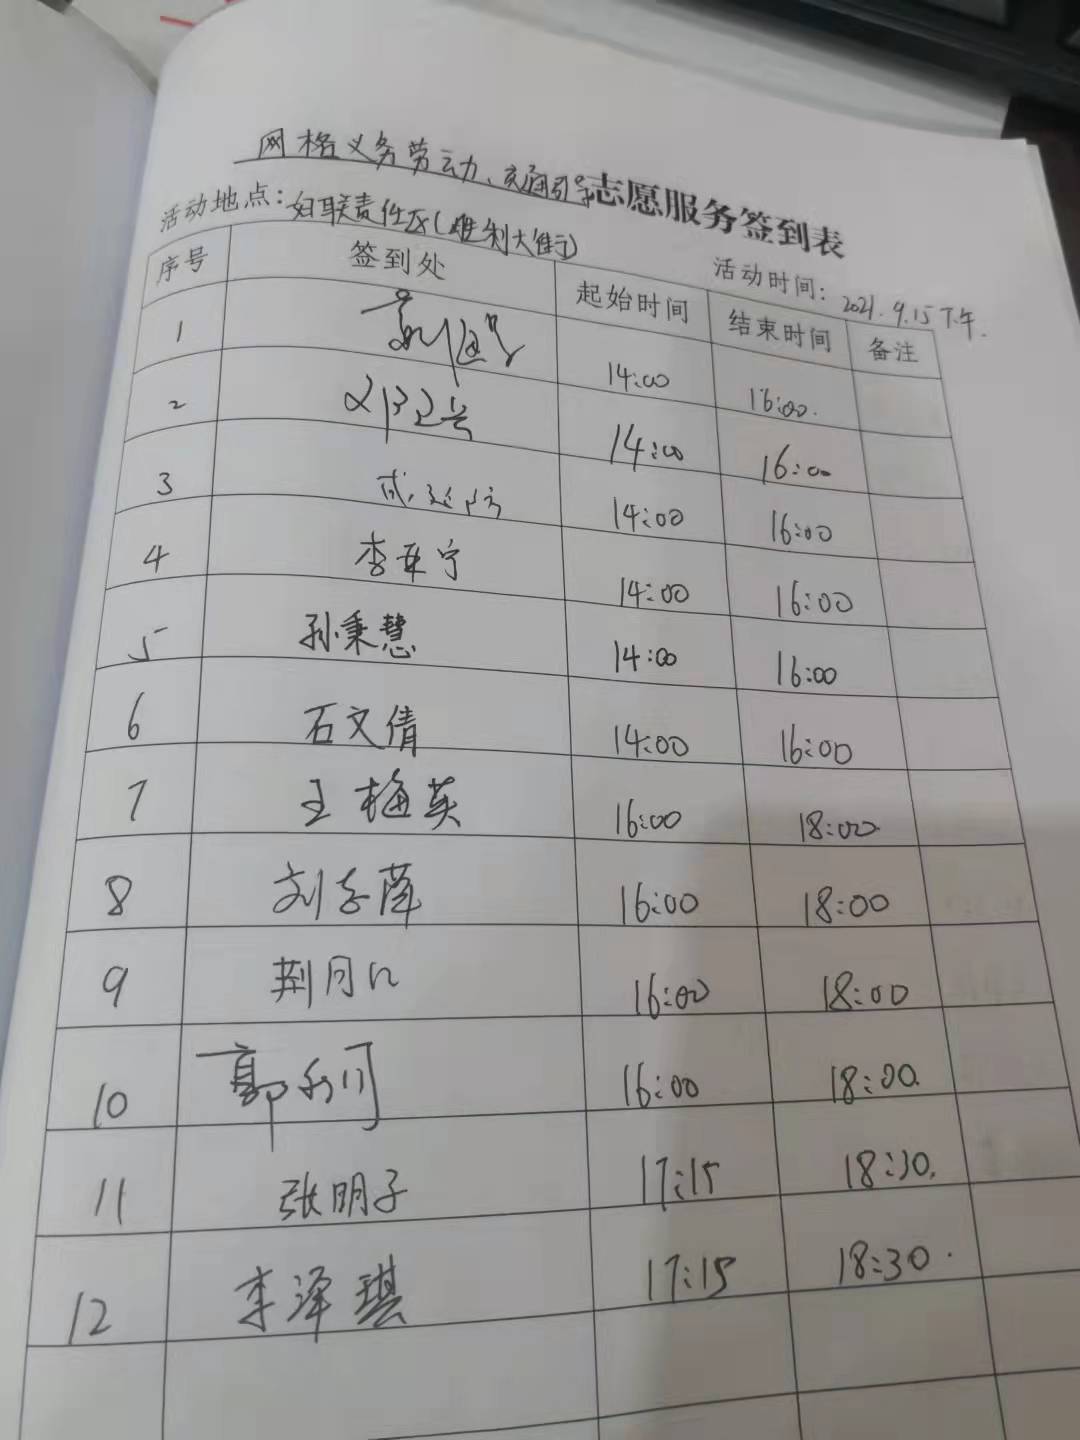 网格义务劳动、交通引导志愿服务签到表
活动地点：妇联责任区（胜利大街）
活动时间：2021.9.15下午.
序号 签到处 起始时间 结束时间 备注
1 14:00 16:00.
2 14:00 16:00
3 14:00 16:00
4 李亚宁 14:00 16:00
5 孙秉慧 14:00 16:00
6 石文倩 14:00 16:00
7 王梅英 16:00 18:00
8 刘志萍 16:00 18:00
9 荆月 16:00 18:00
10 郭 16:00 18:00.
11 张明子 17:15 18:30.
12 李泽琪 17:15 18:30.